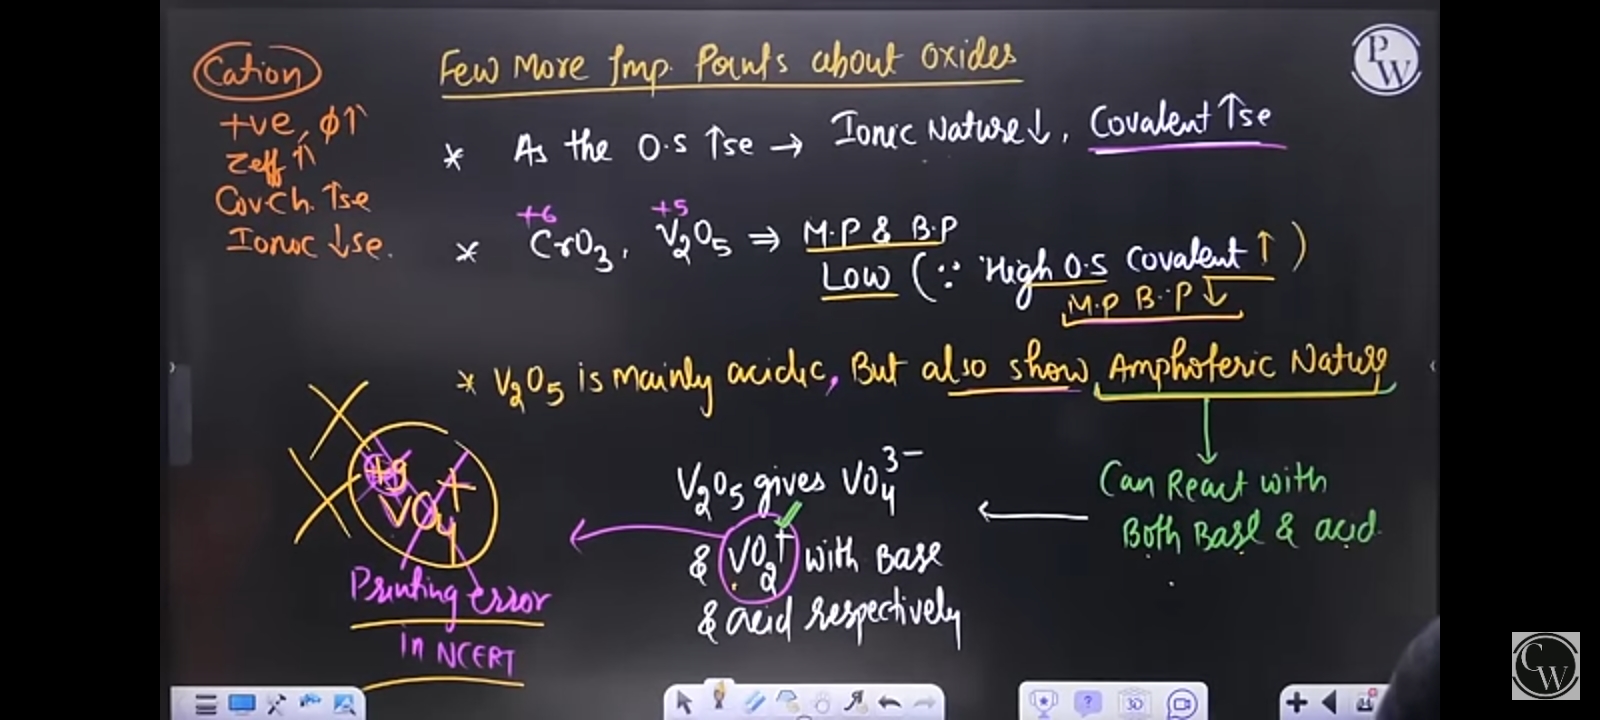 Cation
+ve, ϕ↑
Zeff ↑
Cov.Ch. ↑se
Ionic ↓se.
Few More Imp. Points about Oxides
* As the O.S ↑se → Ionic Nature ↓, Covalent ↑se
+6 +5
* CrO3, V2O5 ⇒ M.P & B.P
Low (∵ High O.S Covalent ↑)
M.P B.P ↓
* V2O5 is Mainly acidic, But also show Amphoteric Nature
Can React with
Both Base & acid.
V2O5 gives VO4 3−
& VO2+ with Base
& acid respectively
VO4+
Printing error
in NCERT
PW
CW